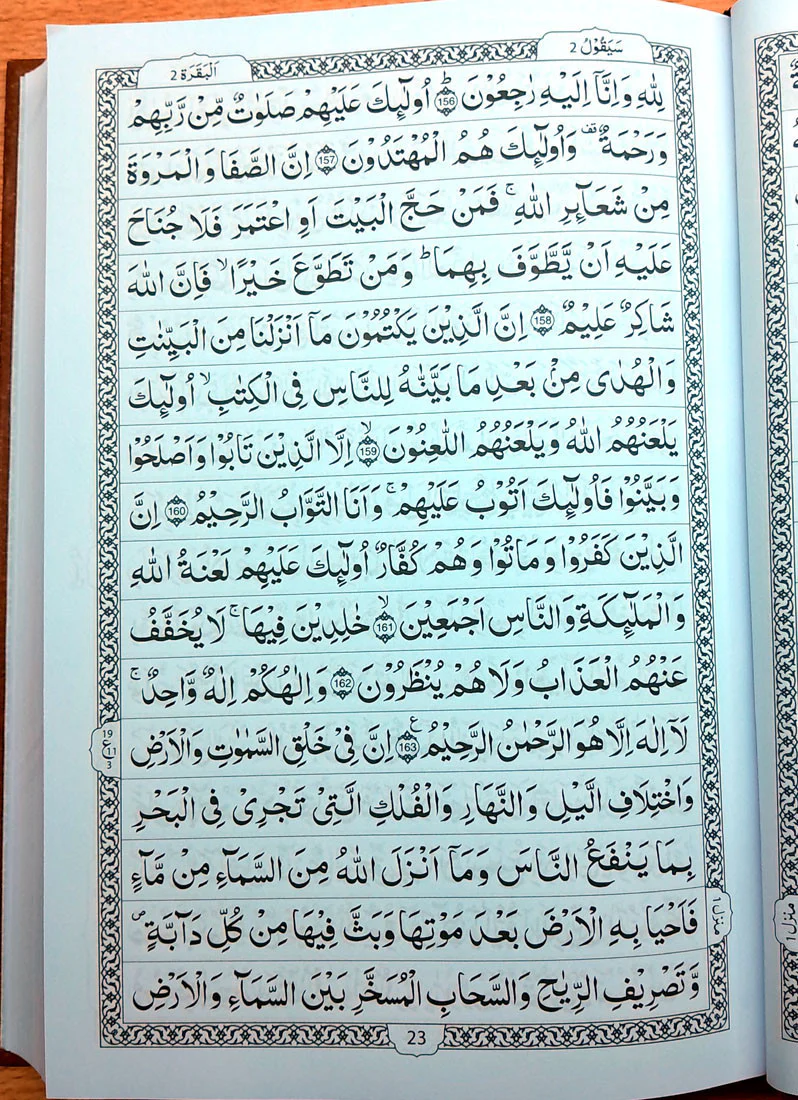 اَلْبَقَرَة 2
سَيَقُوْلُ 2
لِلّٰهِ وَاِنَّاۤ اِلَيْهِ رٰجِعُوْنَ ؕ 156 اُولٰٓئِكَ عَلَيْهِمْ صَلَوٰتٌ مِّنْ رَّبِّهِمْ
وَرَحْمَةٌ قف وَاُولٰٓئِكَ هُمُ الْمُهْتَدُوْنَ 157 اِنَّ الصَّفَا وَالْمَرْوَةَ
مِنْ شَعَآئِرِ اللّٰهِ ۚ فَمَنْ حَجَّ الْبَيْتَ اَوِ اعْتَمَرَ فَلَا جُنَاحَ
عَلَيْهِ اَنْ يَّطَّوَّفَ بِهِمَا ؕ وَمَنْ تَطَوَّعَ خَيْرًا ۙ فَاِنَّ اللّٰهَ
شَاكِرٌ عَلِيْمٌ 158 اِنَّ الَّذِيْنَ يَكْتُمُوْنَ مَاۤ اَنْزَلْنَا مِنَ الْبَيِّنٰتِ
وَالْهُدٰى مِنْۢ بَعْدِ مَا بَيَّنّٰهُ لِلنَّاسِ فِى الْكِتٰبِ ۙ اُولٰٓئِكَ
يَلْعَنُهُمُ اللّٰهُ وَيَلْعَنُهُمُ اللّٰعِنُوْنَ ۙ 159 اِلَّا الَّذِيْنَ تَابُوْا وَاَصْلَحُوْا
وَبَيَّنُوْا فَاُولٰٓئِكَ اَتُوْبُ عَلَيْهِمْ ۚ وَاَنَا التَّوَّابُ الرَّحِيْمُ 160 اِنَّ
الَّذِيْنَ كَفَرُوْا وَمَاتُوْا وَهُمْ كُفَّارٌ اُولٰٓئِكَ عَلَيْهِمْ لَعْنَةُ اللّٰهِ
وَالْمَلٰٓئِكَةِ وَالنَّاسِ اَجْمَعِيْنَ ۙ 161 خٰلِدِيْنَ فِيْهَا ۚ لَا يُخَفَّفُ
عَنْهُمُ الْعَذَابُ وَلَا هُمْ يُنْظَرُوْنَ 162 وَاِلٰهُكُمْ اِلٰهٌ وَّاحِدٌ ۚ
لَاۤ اِلٰهَ اِلَّا هُوَ الرَّحْمٰنُ الرَّحِيْمُ 163 ع اِنَّ فِىْ خَلْقِ السَّمٰوٰتِ وَالْاَرْضِ
19
ع 11
3
وَاخْتِلَافِ الَّيْلِ وَالنَّهَارِ وَالْفُلْكِ الَّتِىْ تَجْرِىْ فِى الْبَحْرِ
بِمَا يَنْفَعُ النَّاسَ وَمَاۤ اَنْزَلَ اللّٰهُ مِنَ السَّمَآءِ مِنْ مَّآءٍ
فَاَحْيَا بِهِ الْاَرْضَ بَعْدَ مَوْتِهَا وَبَثَّ فِيْهَا مِنْ كُلِّ دَآبَّةٍ ص
منزل 1
وَّتَصْرِيْفِ الرِّيٰحِ وَالسَّحَابِ الْمُسَخَّرِ بَيْنَ السَّمَآءِ وَالْاَرْضِ
23
منزل 1